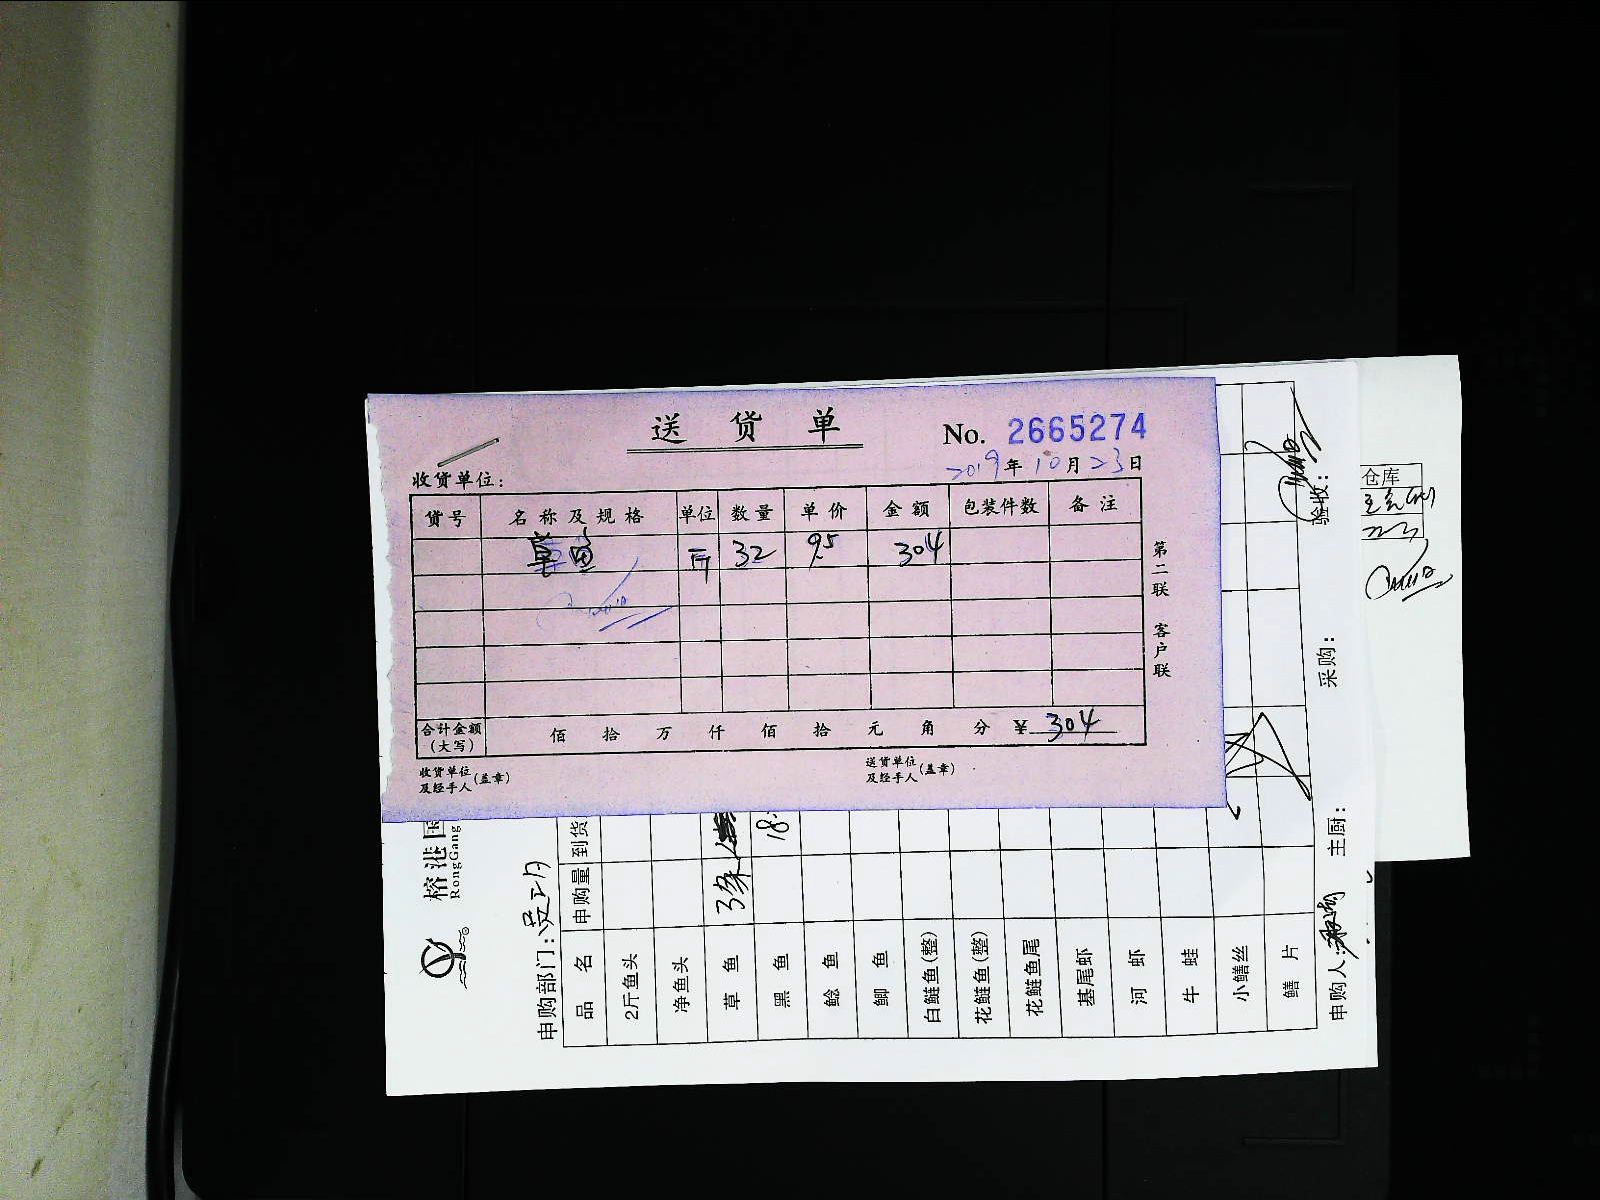 送货单
No. 2665274
2019年10月23日
收货单位:
货号 名称及规格 单位 数量 单价 金额 包装件数 备注
草鱼 斤 32 9.5 304
合计金额(大写) 佰 拾 万 仟 佰 拾 元 角 分 ¥ 304
收货单位及经手人(盖章)
送货单位及经手人(盖章)
第二联 客户联
榕港国
RongGang
申购部门:
品名 申购量 到货
2斤鱼头
净鱼头
草鱼 3条
黑鱼 18
鲶鱼
鲫鱼
白鲢鱼(整)
花鲢鱼(整)
花鲢鱼尾
基尾虾
河虾
牛蛙
小鳝丝
鳝片
申购人:
主厨:
采购:
验收:
仓库